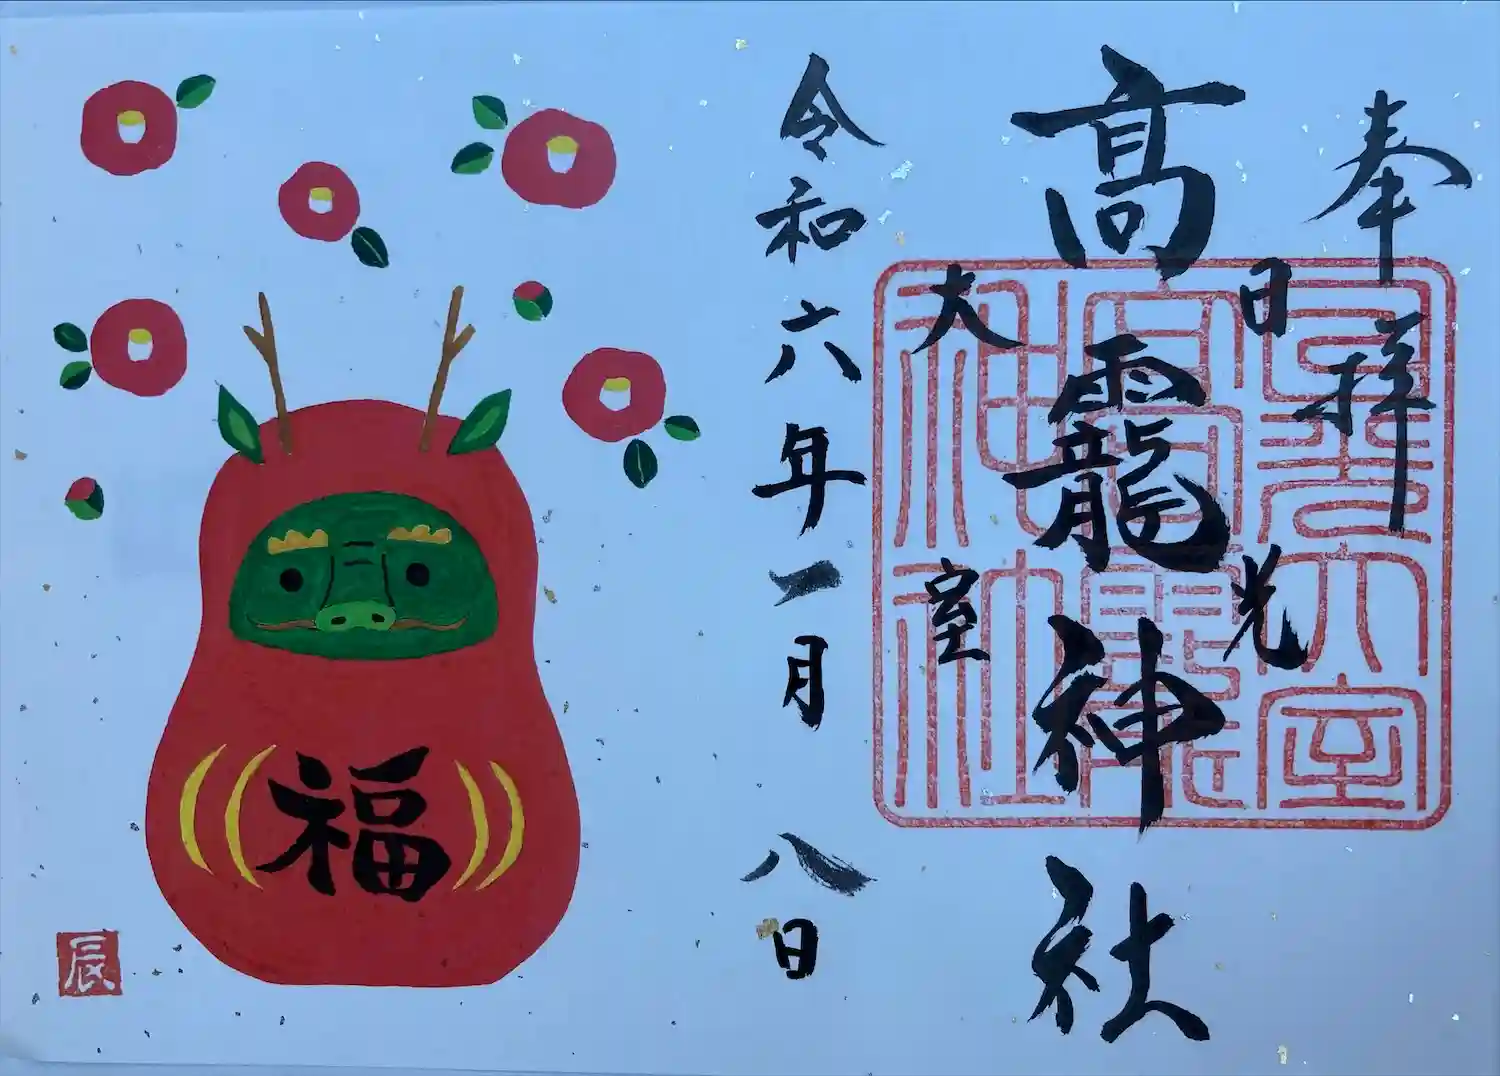 奉拝
日光
髙龗神社
大室
令和六年一月八日
日光大室
高龗
神社
福
辰